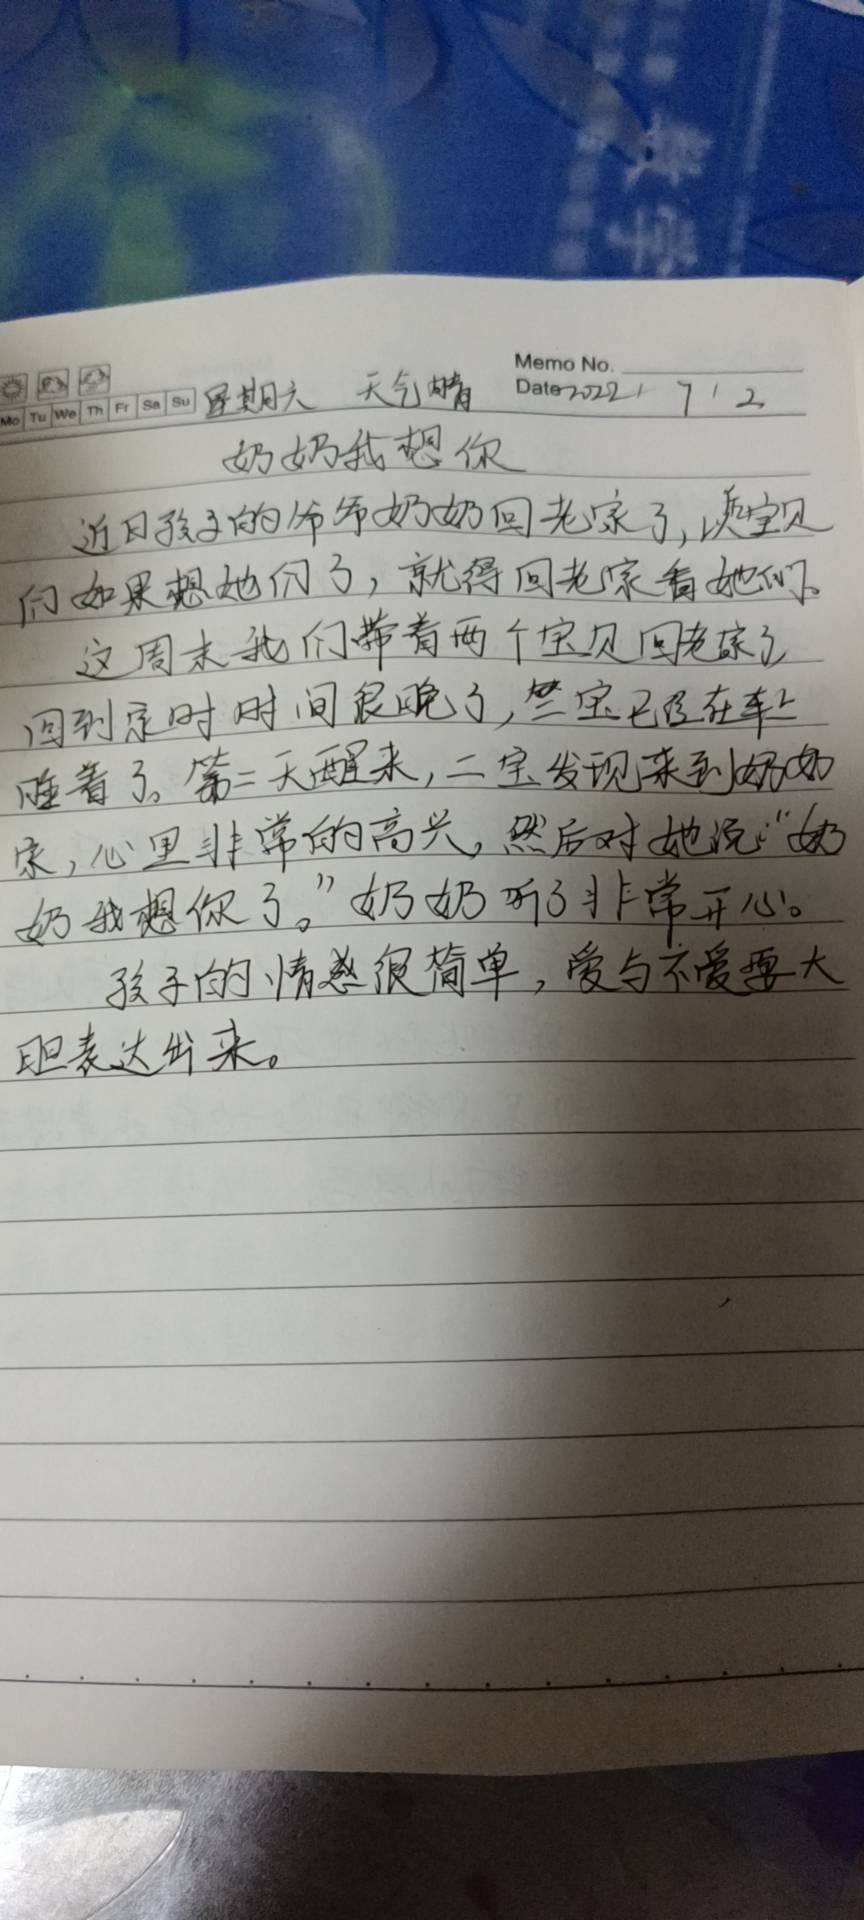 数学
Memo No.
Mo Tu We Th Fr Sa Su 星期六 天气晴 Date 2022 / 7 / 2
奶奶我想你
近日孩子的爷爷奶奶回老家了,宝贝
们如果想她们了,就得回老家看她们。
这周末我们带着两个宝贝回老家了,
回到家时时间很晚了,宝已经在车上
睡着了。第二天醒来,二宝发现来到奶奶
家,心里非常的高兴,然后对她说:“奶
奶我想你了。”奶奶听了非常开心。
孩子的情感很简单,爱与不爱要大
胆表达出来。